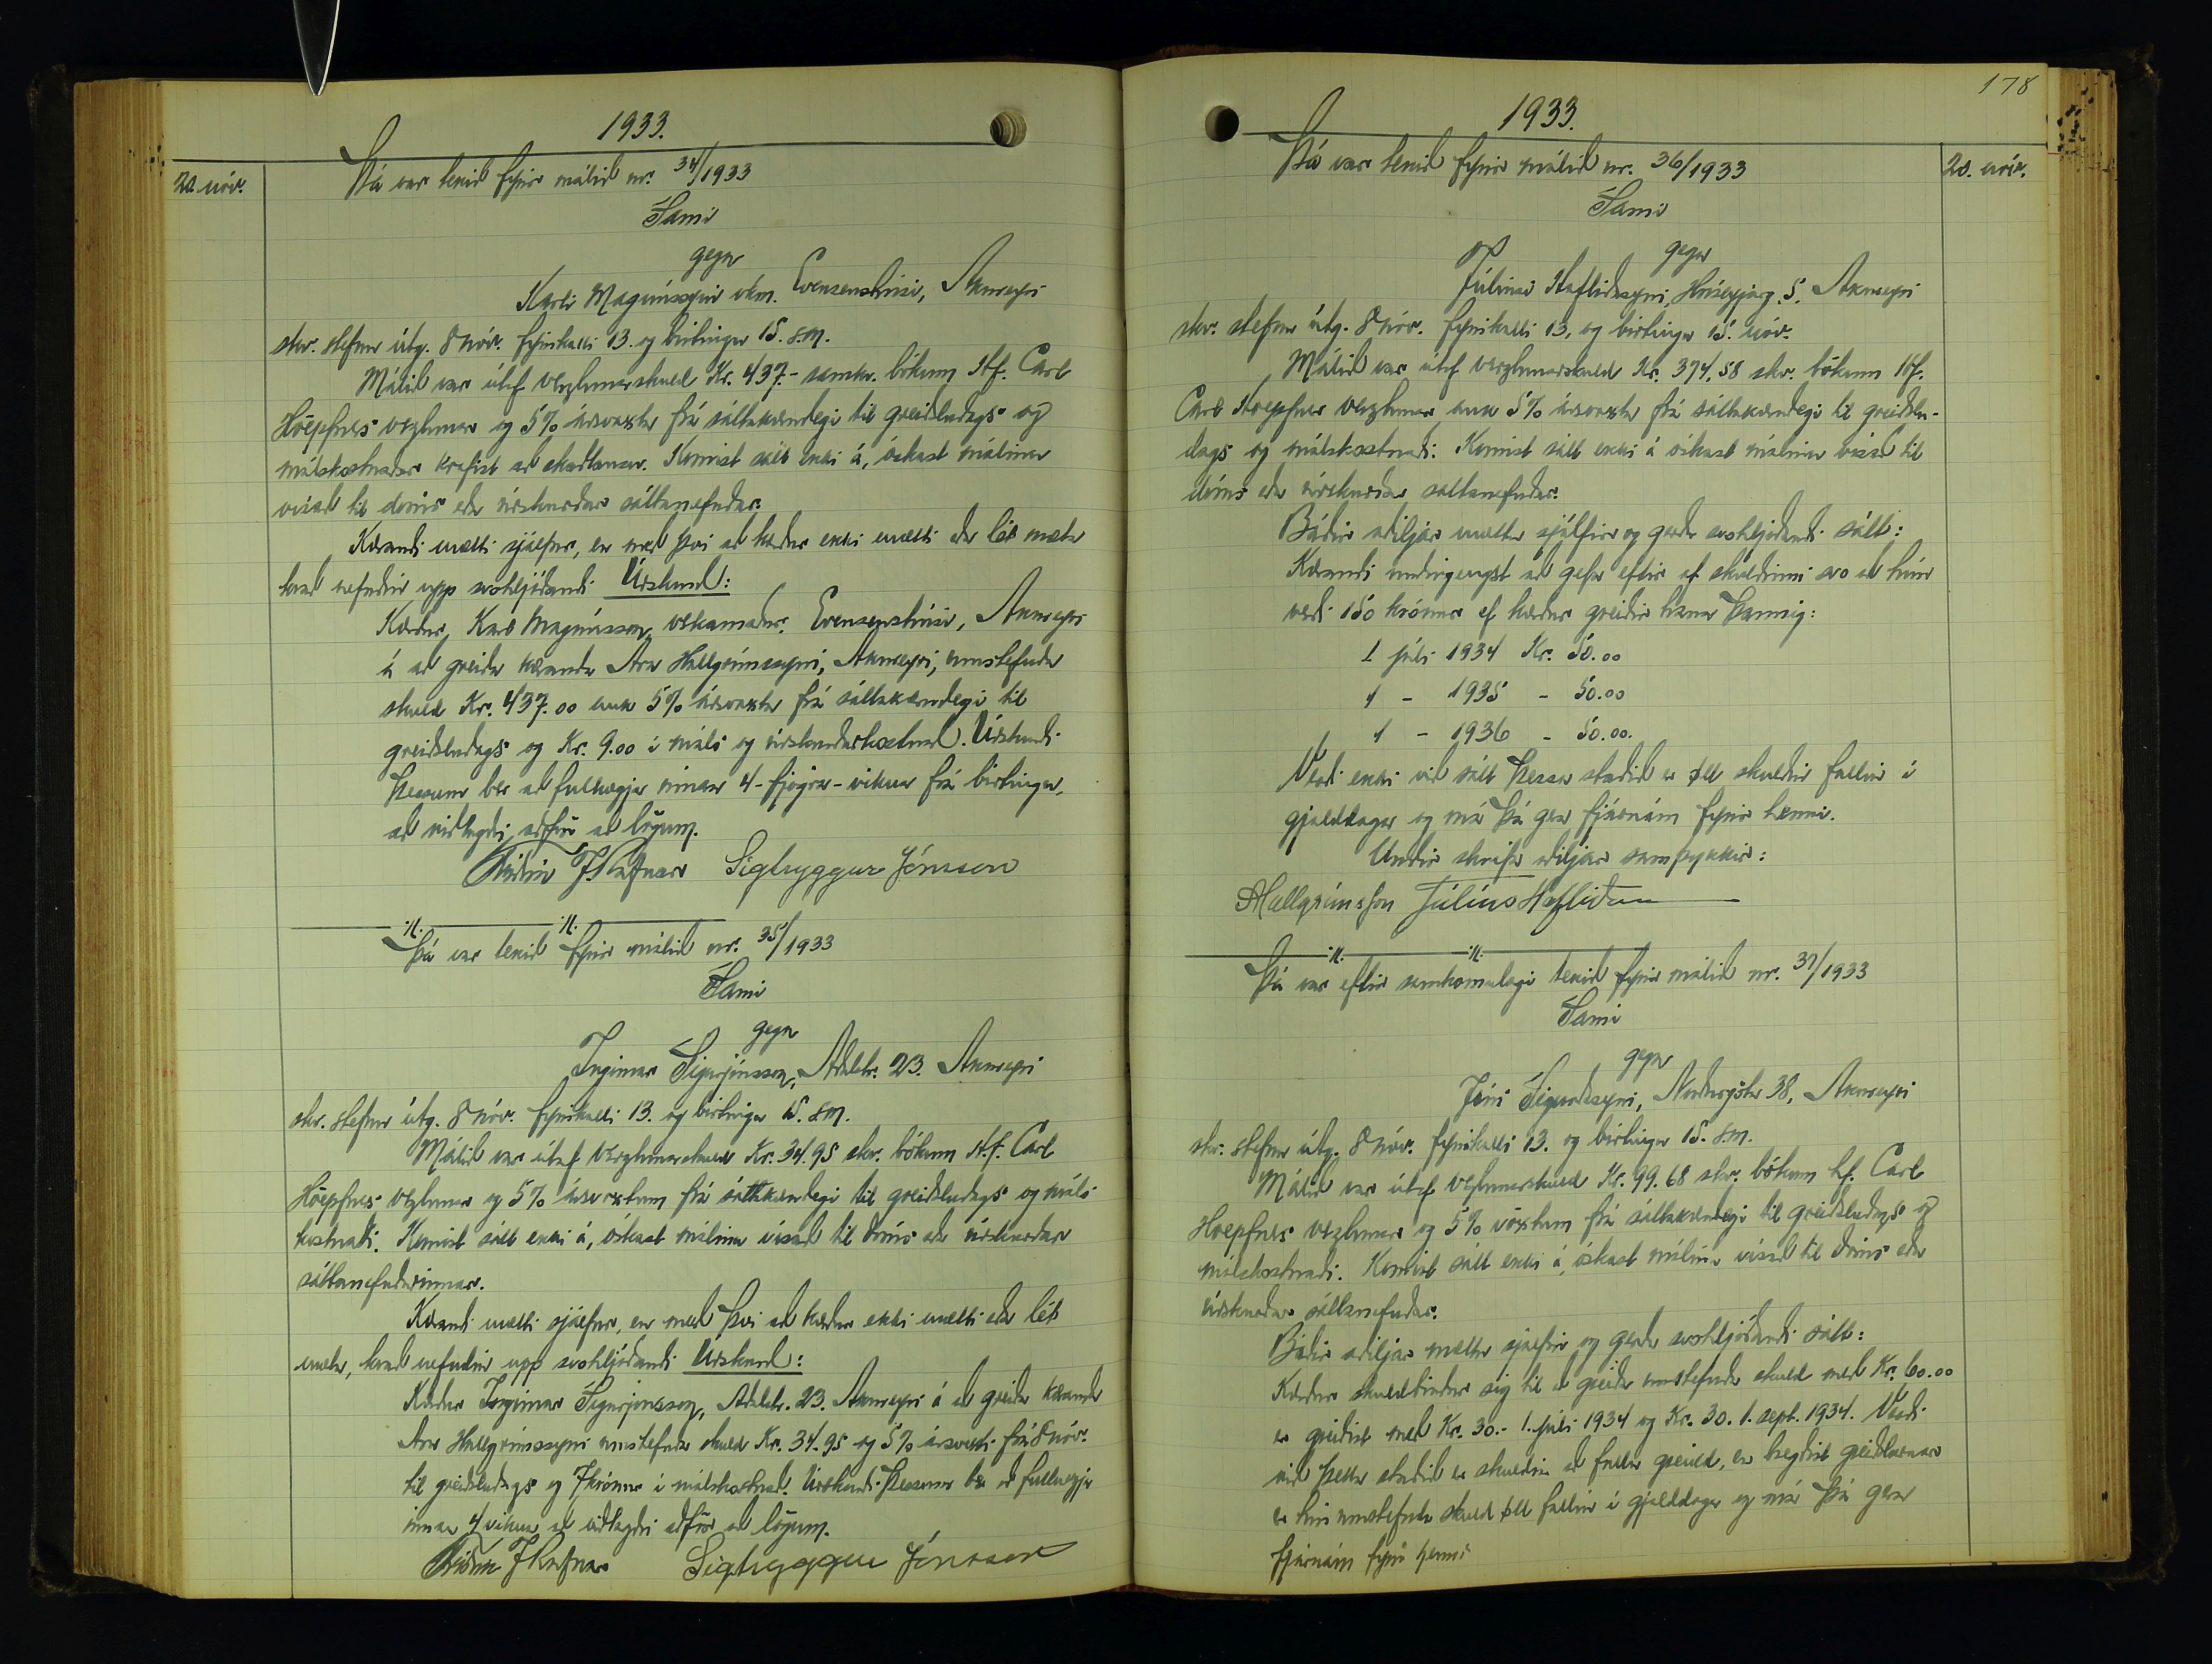 1933.
20. nóv.
Þá var tekið fyrir málið nr. 34/1933
Sami
gegn
Karli Magnússyni vkm. Evensenshúsi, Akureyri
skv. stefnu útg. 8 nóv. fyrirkalli 13. og birtingu 15. s.m.
Málið var útaf verzlunarskuld Kr. 437.- samkv. bókum H.f. Carl
Höepfners verzlunar og 5% ársvaxta frá sáttakærudegi til greiðsludags og
málskostnaðar krafist að skaðlausu. Komist sátt ekki á, óskast málinu
vísað til dóms eða úrskurðar sáttanefndar.
Kærandi mætti sjálfur, en með því að kærður ekki mætti eða lét mæta
kvað nefndin upp svohljóðandi Úrskurð:
Kærður, Karl Magnússon, verkamaður, Evensenshúsi, Akureyri
á að greiða kæranda Ara Hallgrímssyni, Akureyri, umstefnda
skuld Kr. 437.00 auk 5% ársvaxta frá sáttakærudegi til
greiðsludags og Kr. 9.00 í máls og úrskurðarkostnað. Úrskurði
þessum ber að fullnægja innan 4 - fjögra - vikna frá birtingu,
að viðlagðri aðför að lögum.
Friðrik J. Rafnar Sigtryggur Jónsson
Þá var tekið fyrir málið nr. 35/1933
Sami
gegn
Ingimar Sigurjónsson, Aðalstr. 23. Akureyri
skv. stefnu útg. 8 nóv. fyrirkalli 13. og birtingu 15. s.m.
Málið var útaf verzlunarskuld Kr. 34.95 skv. bókum H.f. Carl
Höepfners verzlunar og 5% ársvöxtum frá sáttakærudegi til greiðsludags og máls
kostnaði. Komist sátt ekki á, óskast málinu vísað til dóms eða úrskurðar
sáttanefndarinnar.
Kærandi mætti sjálfur, en með því að kærður ekki mætti eða lét
mæta, kvað nefndin upp svohljóðandi Úrskurð:
Kærður Ingimar Sigurjónsson, Aðalstr. 23. Akureyri á að greiða kæranda
Ara Hallgrímssyni umstefnda skuld Kr. 34.95 og 5% ársvexti frá 8 nóv.
til greiðsludags og 7 krónur í málskostnað. Úrskurði þessum ber að fullnægja
innan 4 vikna að viðlagðri aðför að lögum.
Friðrik J Rafnar Sigtryggur Jónsson
178
1933.
20. nóv.
Þá var tekið fyrir málið nr. 36/1933
Sami
gegn
Júlíusi Hafliðasyni, Hríseyjarg. 5. Akureyri
skv. stefnu útg. 8 nóv. fyrirkalli 13. og birtingu 15. nóv.
Málið var útaf verzlunarskuld Kr. 374.58 skv. bókum H.f.
Carl Hoepfners verzlunar auk 5% ársvaxta frá sáttakærudegi til greiðslu-
dags og málskostnaði. Komist sátt ekki á óskast málinu vísað til
dóms eða úrskurðar sáttanefndar.
Báðir aðiljar mættu sjálfir og gerðu svohljóðandi sátt:
Kærandi undirgengst að gefa eftir af skuldinni svo að hún
verði 150 krónur ef kærður greiðir hana þannig:
1 júlí 1934 Kr. 50.00
1 - 1935 - 50.00
1 - 1936 - 50.00.
Verði ekki við sátt þessa staðið er öll skuldin fallin í
gjalddaga og má þá gera fjárnám fyrir henni.
Undir skrifa aðiljar samþykkir:
AHallgrímsson Júlíus Hafliðason
Þá var eftir samkomulagi tekið fyrir málið nr. 37/1933
Sami
gegn
Jóni Sigurðssyni, Norðurgötu 38, Akureyri
skv. stefnu útg. 8 nóv. fyrirkalli 13. og birtingu 15. s.m.
Málið var útaf verzlunarskuld Kr. 99.68 skv. bókum h.f. Carl
Hoepfners verzlunar og 5% vöxtum frá sáttakærudegi til greiðsludags og
málskostnaði. Komist sátt ekki á, óskast málinu vísað til dóms eða
úrskurðar sáttanefndar.
Báðir aðiljar mættu sjálfir og gerðu svohljóðandi sátt:
Kærður skuldbindur sig til að greiða umstefnda skuld með Kr. 60.00
er greiðist með Kr. 30.- 1. júlí 1934 og Kr. 30. 1. sept. 1934. Verði
við þetta staðið er skuldin að fullu greidd, en bregðist greiðslurnar
er hin umstefnda skuld öll fallin í gjalddaga og má þá gera
fjárnám fyrir henni